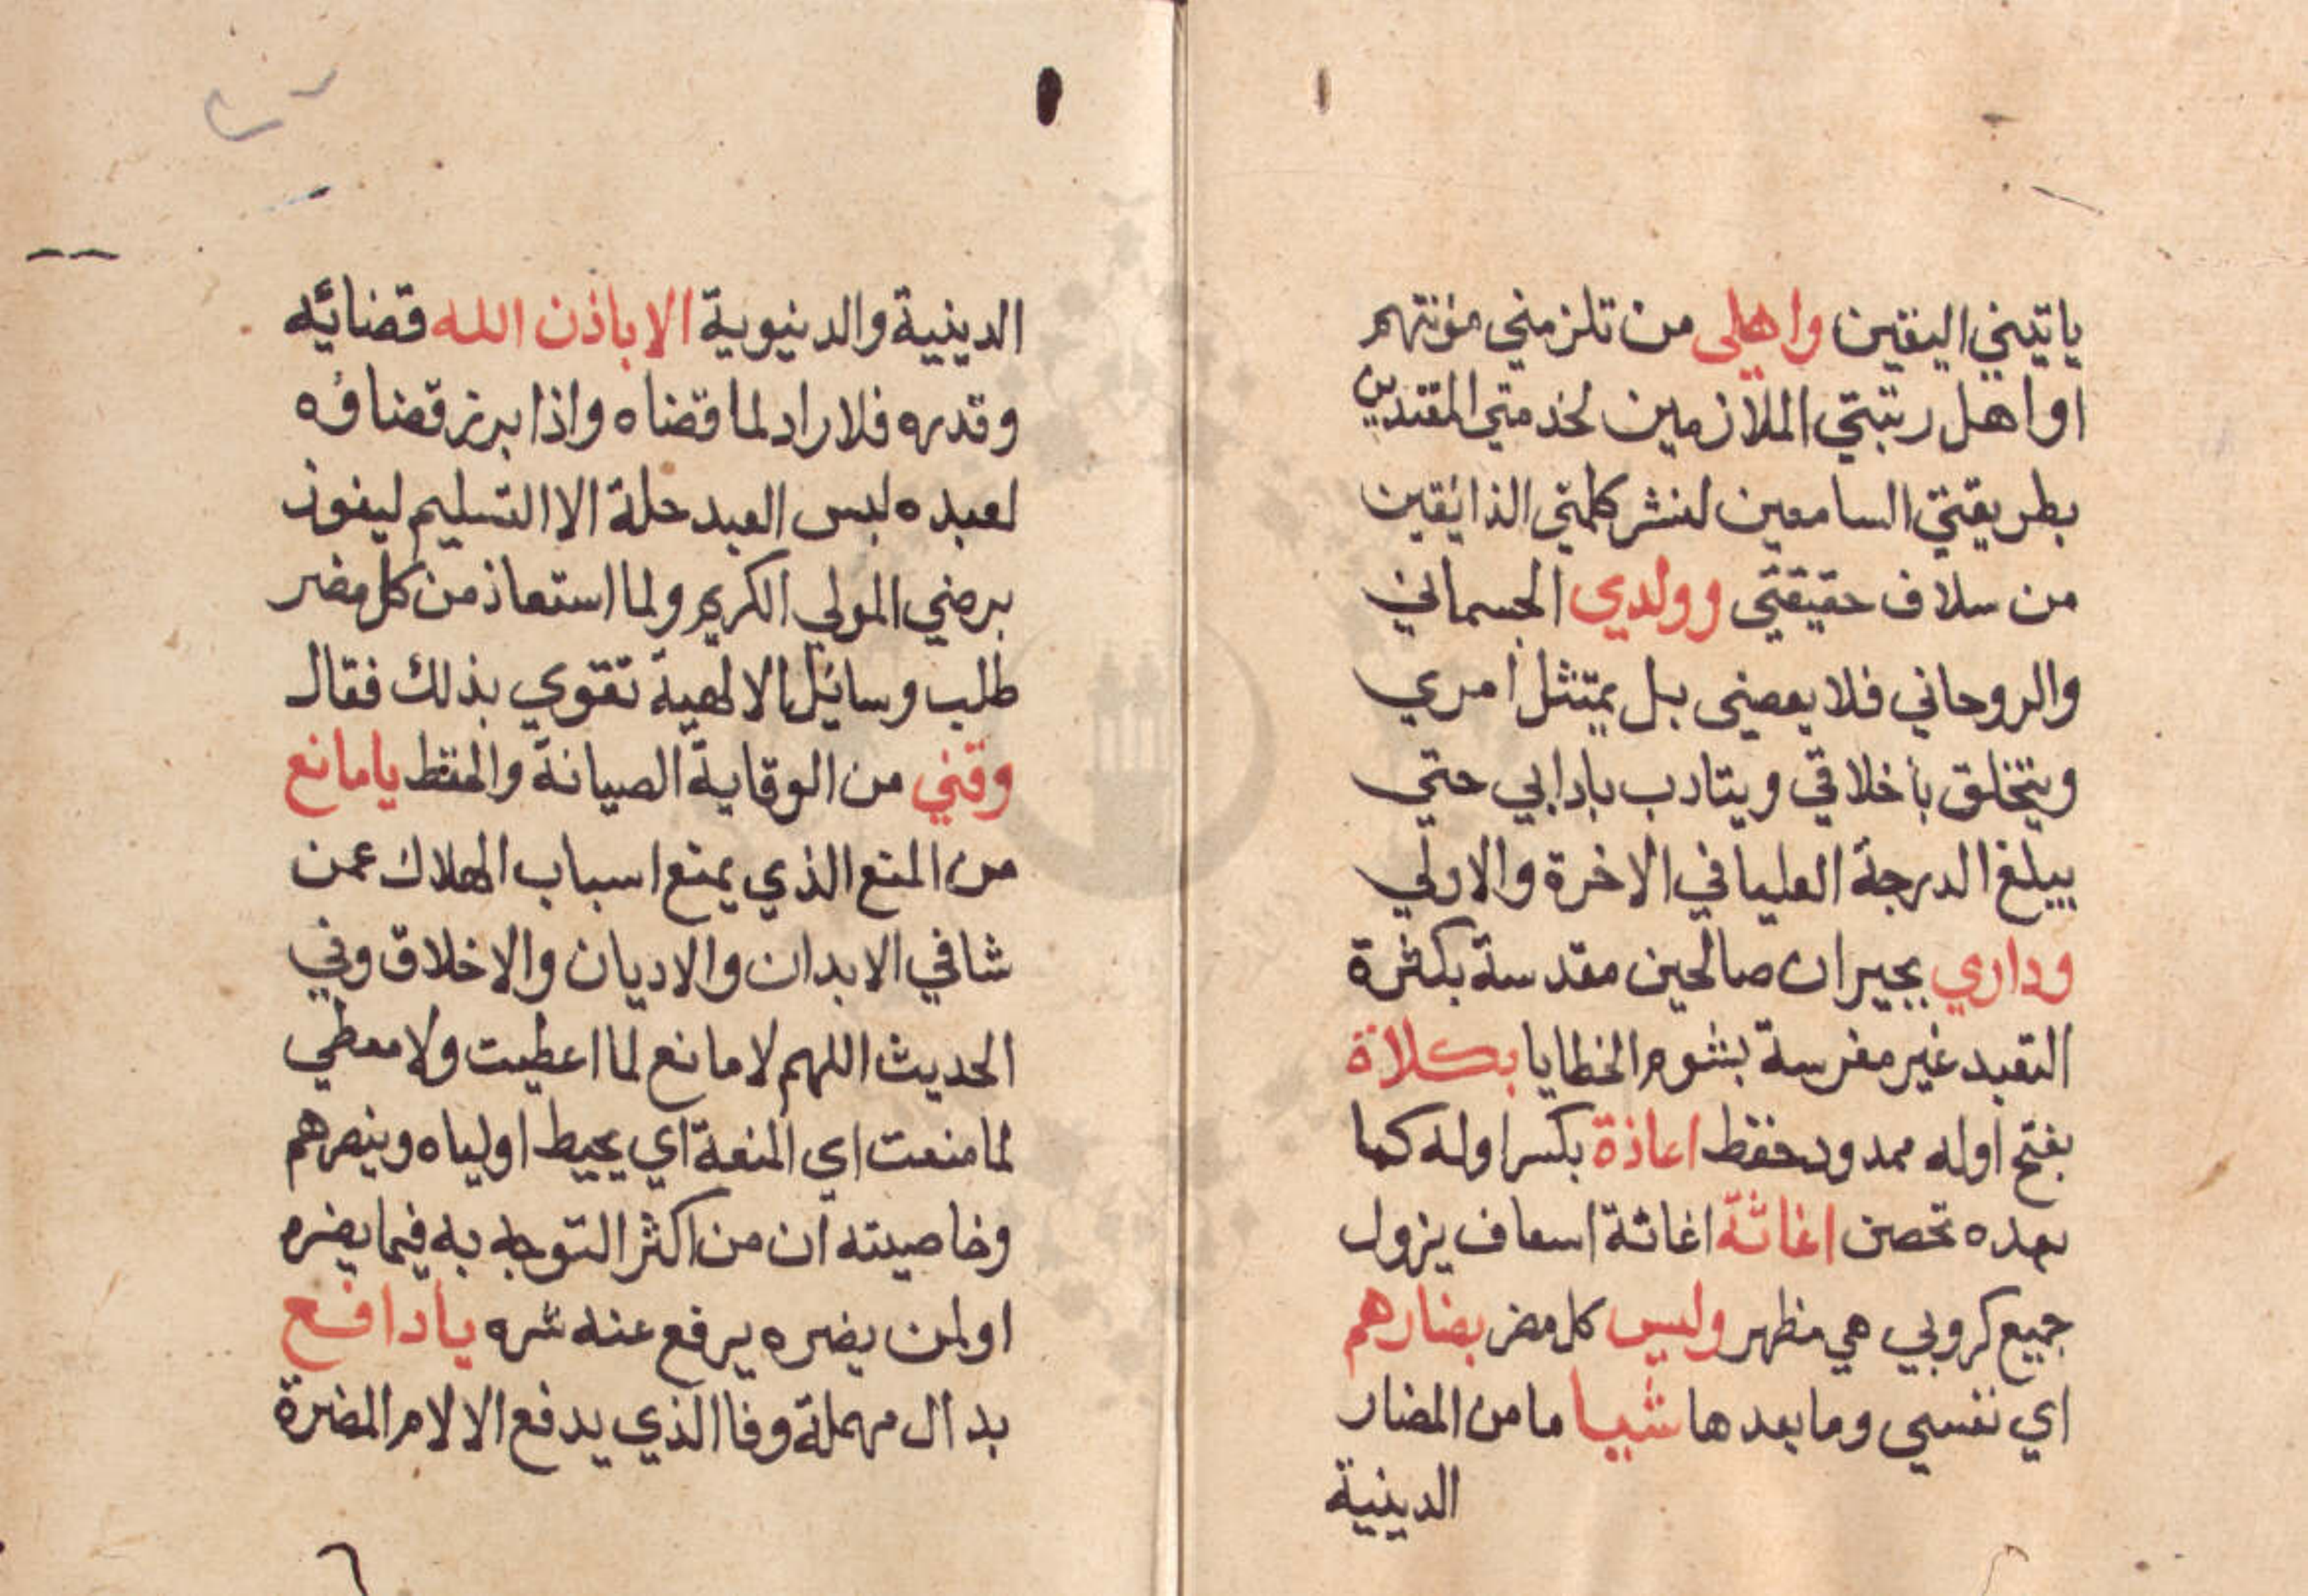 ياتيني اليقين واهلي من تلزمني مؤنتهم
او اهل رتبتي الملازمين لخدمتي المقتدين
بطريقتي السامعين لنشر كلمتي الذائقين
من سلاف حقيقتي وولدي الجسماني
والروحاني فلا يعصني بل يمتثل امري
ويتخلق باخلاقي ويتادب بادابي حتي
يبلغ الدرجة العليا في الاخرة والاولي
وداري بجيران صالحين مقدسة بكثرة
التعبد غير مغرسة بشوم الخطايا بكلاة
بفتح اوله ممدود حفظ اعاذة بكسر اوله كما
بعده تحصن اغاثة اغاثة اسعاف يزول
جميع كروبي هي مظهر وليس كل مضر بضارهم
اي نفسي وما بعدها شيا ما من المضار
الدينية
الدينية والدنيوية الا باذن الله قضائه
وقدره فلا راد لما قضاه واذا برز قضاؤه
لعبده لبس العبد حلة الا التسليم ليفوز
برضي المولي الكريم ولما استعاذ من كل مضر
طلب وسائل الالهية تقوي بذلك فقال
وقني من الوقاية الصيانة والحفظ يا مانع
من المنع الذي يمنع اسباب الهلاك عمن
شا في الابدان والاديان والاخلاق وفي
الحديث اللهم لا مانع لما اعطيت ولا معطي
لما منعت اي المنعة اي يحيط اولياه وينصرهم
وخاصيته ان من اكثر التوجه به فيما يضره
او لمن يضره يرفع عنه شره يا دافع
بدال مهملة وفا الذي يدفع الالام المضرة